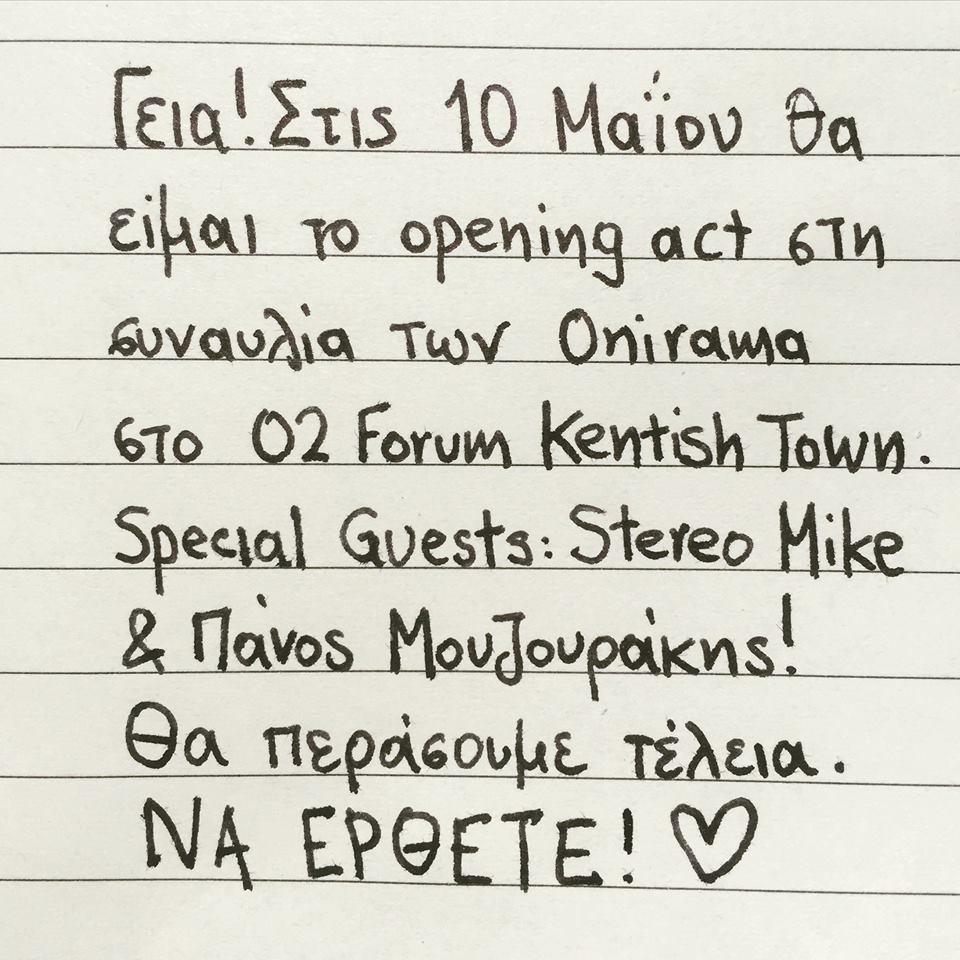 Γεια! Στις 10 Μαΐου θα
είμαι το opening act στη
συναυλία των Onirama
στο O2 Forum Kentish Town.
Special Guests: Stereo Mike
& Πάνος Μουζουράκης!
Θα περάσουμε τέλεια.
ΝΑ ΕΡΘΕΤΕ! ♡